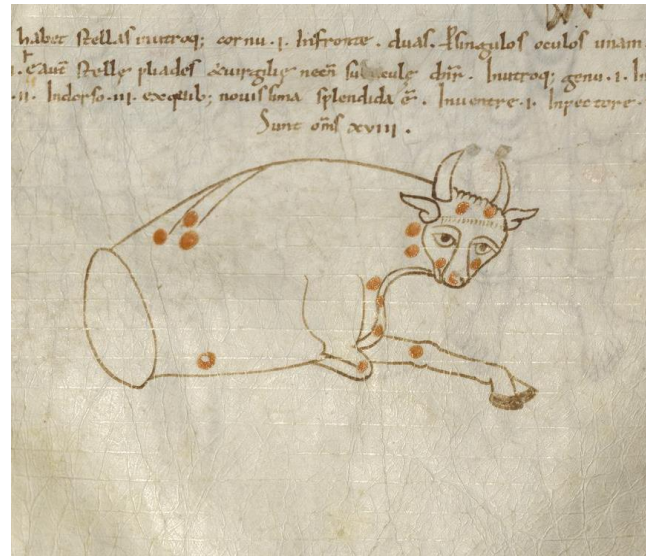 habet stellas inutroq; cornu . i . Infronte . duas . Psingulos oculos unam
. eaut̄ stelle pliades & uirgilie necn̄ suculę dn̄r . Inutroq; genu . i . In
. ii . Indorso . iii . exquib; nouissima splendida ē . Inuentre . i . Inpectore .
Sunt om̄s xviii .